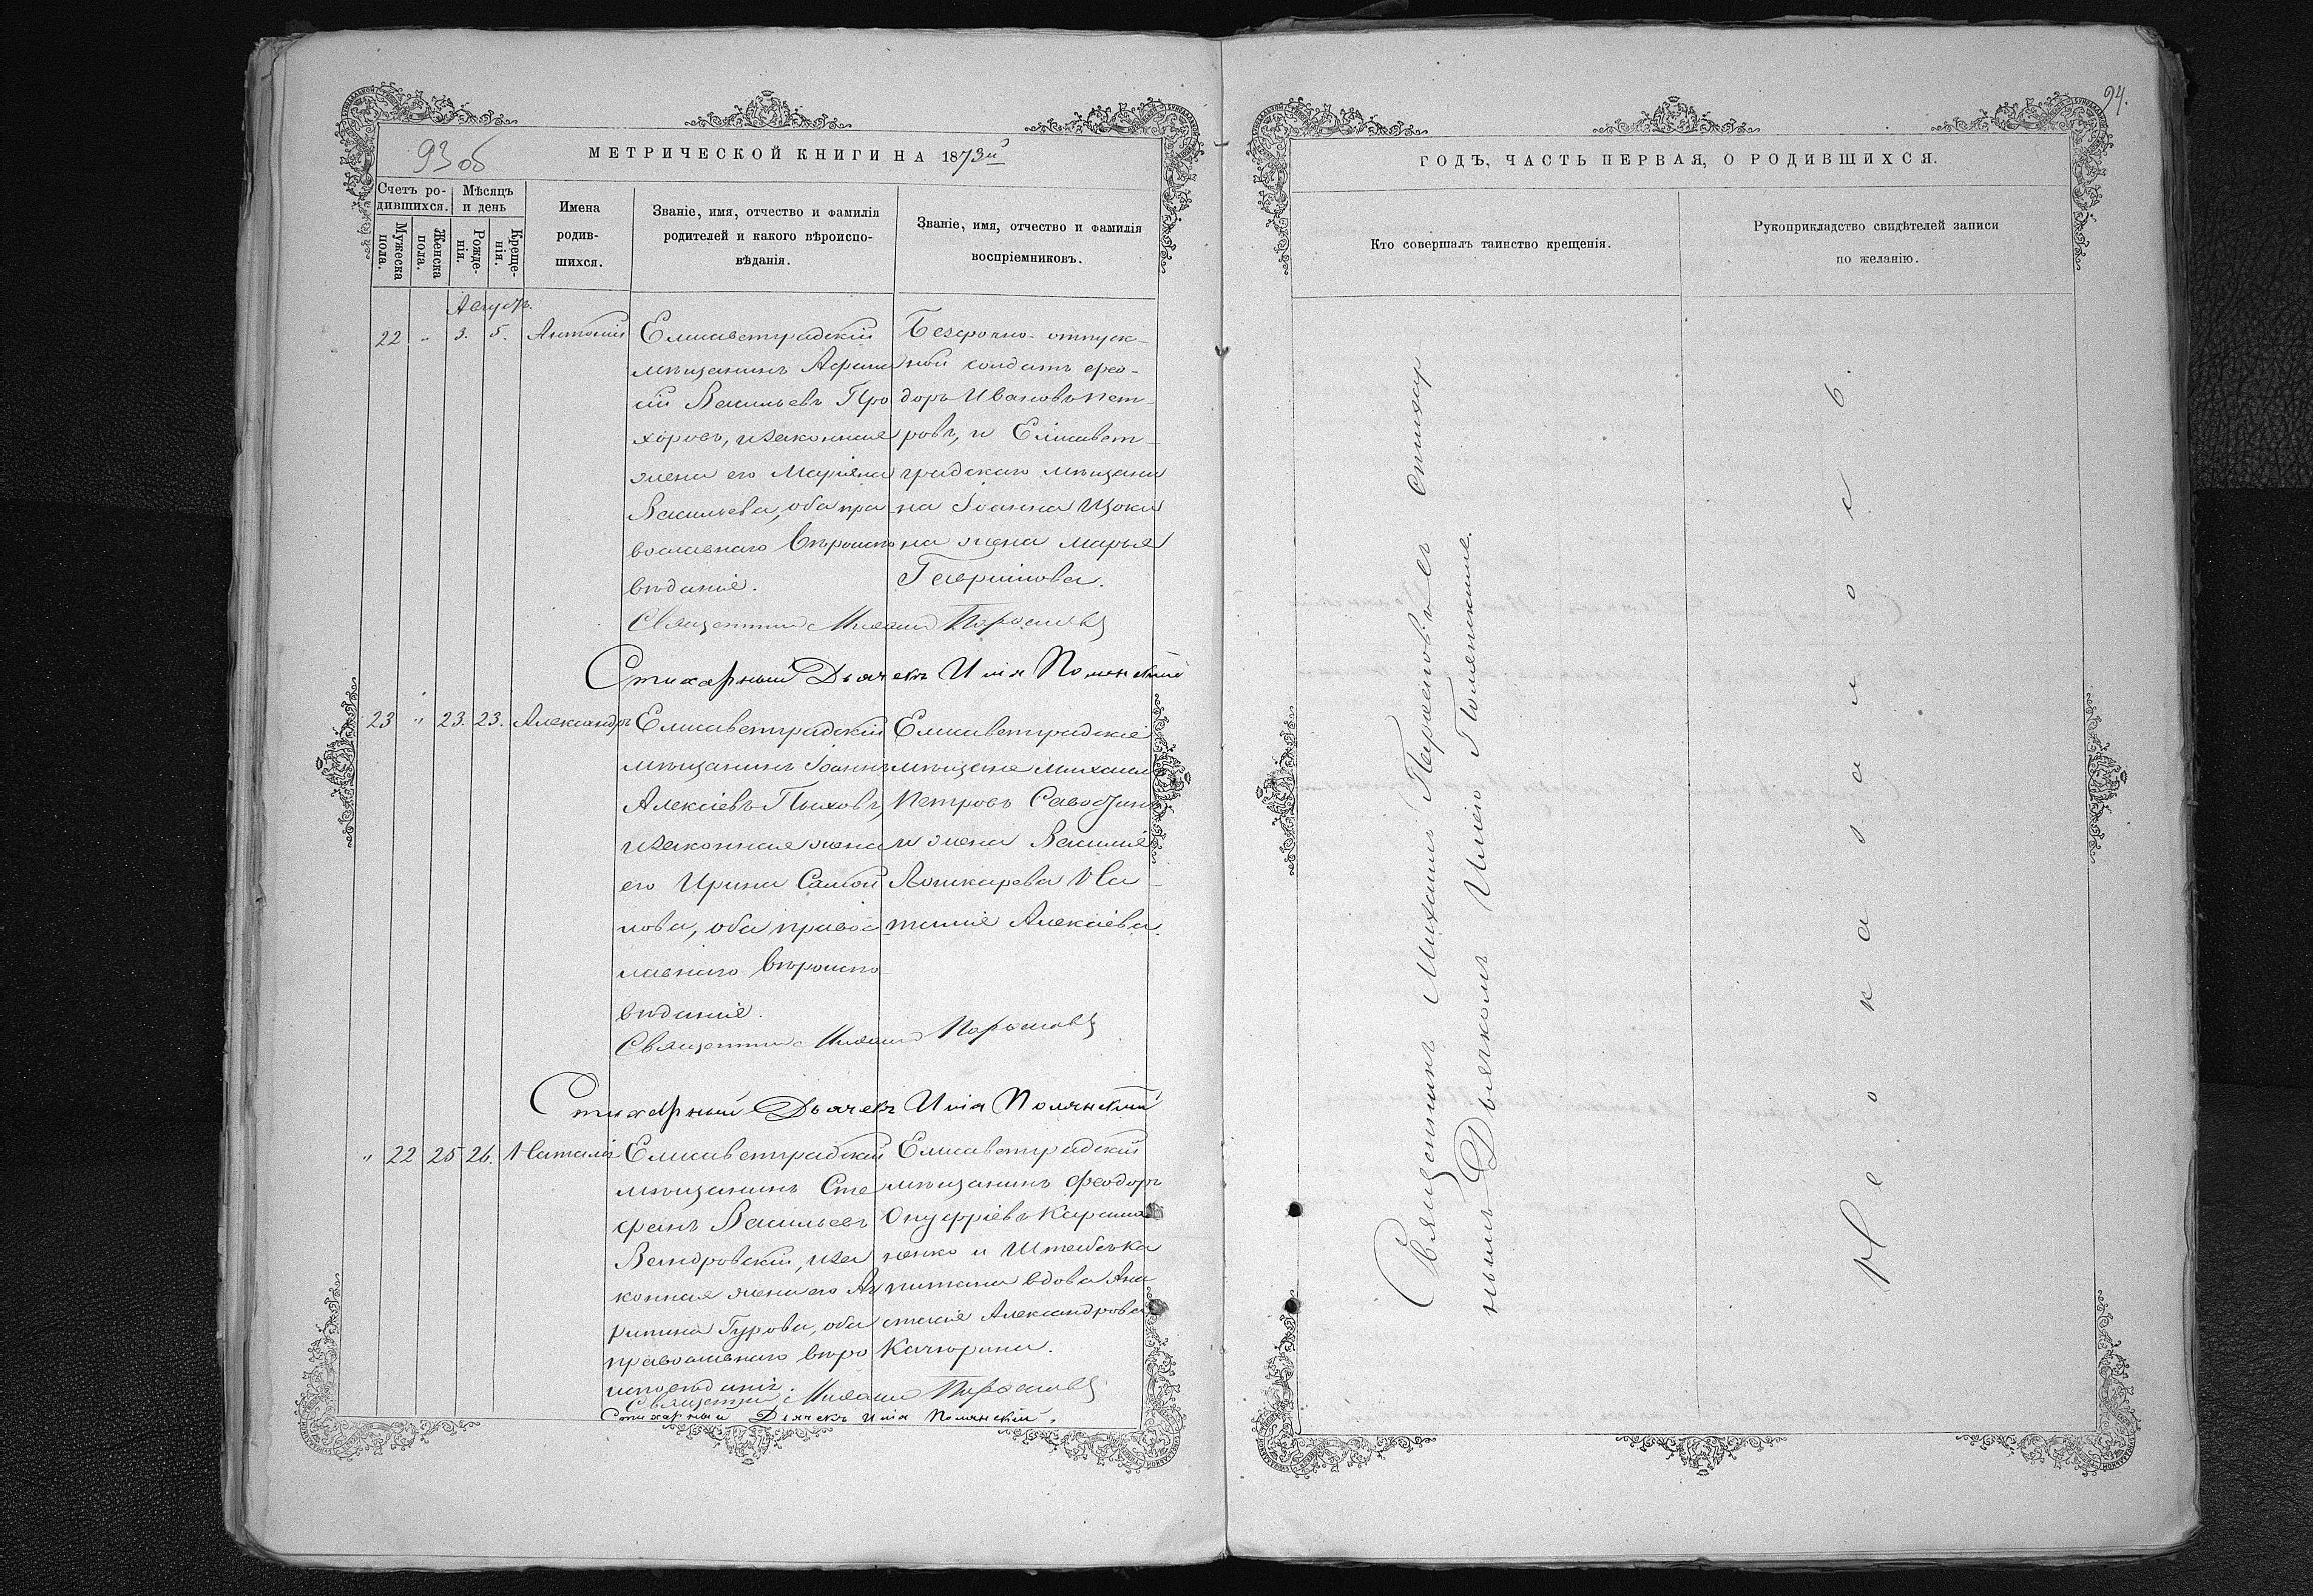 93 об
МЕТРИЧЕСКОЙ КНИГИ НА 1873й
Счетъ ро-
дившихся.
Мѣсяцъ
и день
Мужеска
пола.
Женска
пола.
Рожде-
нія.
Креще-
нія.
Имена
родив-
шихся.
Званіе, имя, отчество и фамилія
родителей и какого вѣроиспо-
вѣданія.
Званіе, имя, отчество и фамилія
воспріемниковъ.
Августъ.
22 " 3. 5. Антоній
Елисаветградскій
мѣщанинъ Афана
сій Васильевъ Про
хоровъ, и законная
жена его Маріяна
Васильева, оба пра
вославнаго вѣроиспо
вѣданія.
Безсрочно-отпуск-
ной солдатъ Фео-
доръ Ивановъ Пет-
ровъ, и Елисавет-
градскаго мѣщани
на Іоанна Щоки
на жена Марья
Гаврилова.
Священникъ Михаилъ
Стихарный Дьячекъ Илія Полянскій
23 " 23. 23. Александръ
Елисаветградскій
мѣщанинъ Іоаннъ
Алексіевъ Пыховъ,
и законная жена
его Ирина Самой
лова, оба правос
лавнаго вѣроиспо
вѣданія.
Елисаветградскіе
мѣщане Михаилъ
Петровъ
и жена Василія
Лошкарева На-
талія Алексіева.
Священникъ Михаилъ
Стихарный Дьячекъ Илія Полянскій
" 22 25 26. Наталія
Елисаветградскій
мѣщанинъ Сте
фанъ Васильевъ
Вандровскій, и за
конная жена его Аг
рипина Гурова, оба
православнаго вѣро
исповѣданія.
Елисаветградскій
мѣщанинъ Феодоръ
Онуфріевъ
ненко и Штабсъ ка
питана вдова Ана
стасія Александрова
Качюрина.
Священникъ Михаилъ
Стихарный Дьячекъ Илія Полянскій.
94.
ГОДЪ, ЧАСТЬ ПЕРВАЯ, О РОДИВШИХСЯ.
Кто совершалъ таинство крещенія.
Рукоприкладство свидѣтелей записи
по желанію.
Священникъ Михаилъ съ стихар
нымъ Дьячкомъ Иліею Полянскимъ.
Не оказалось.